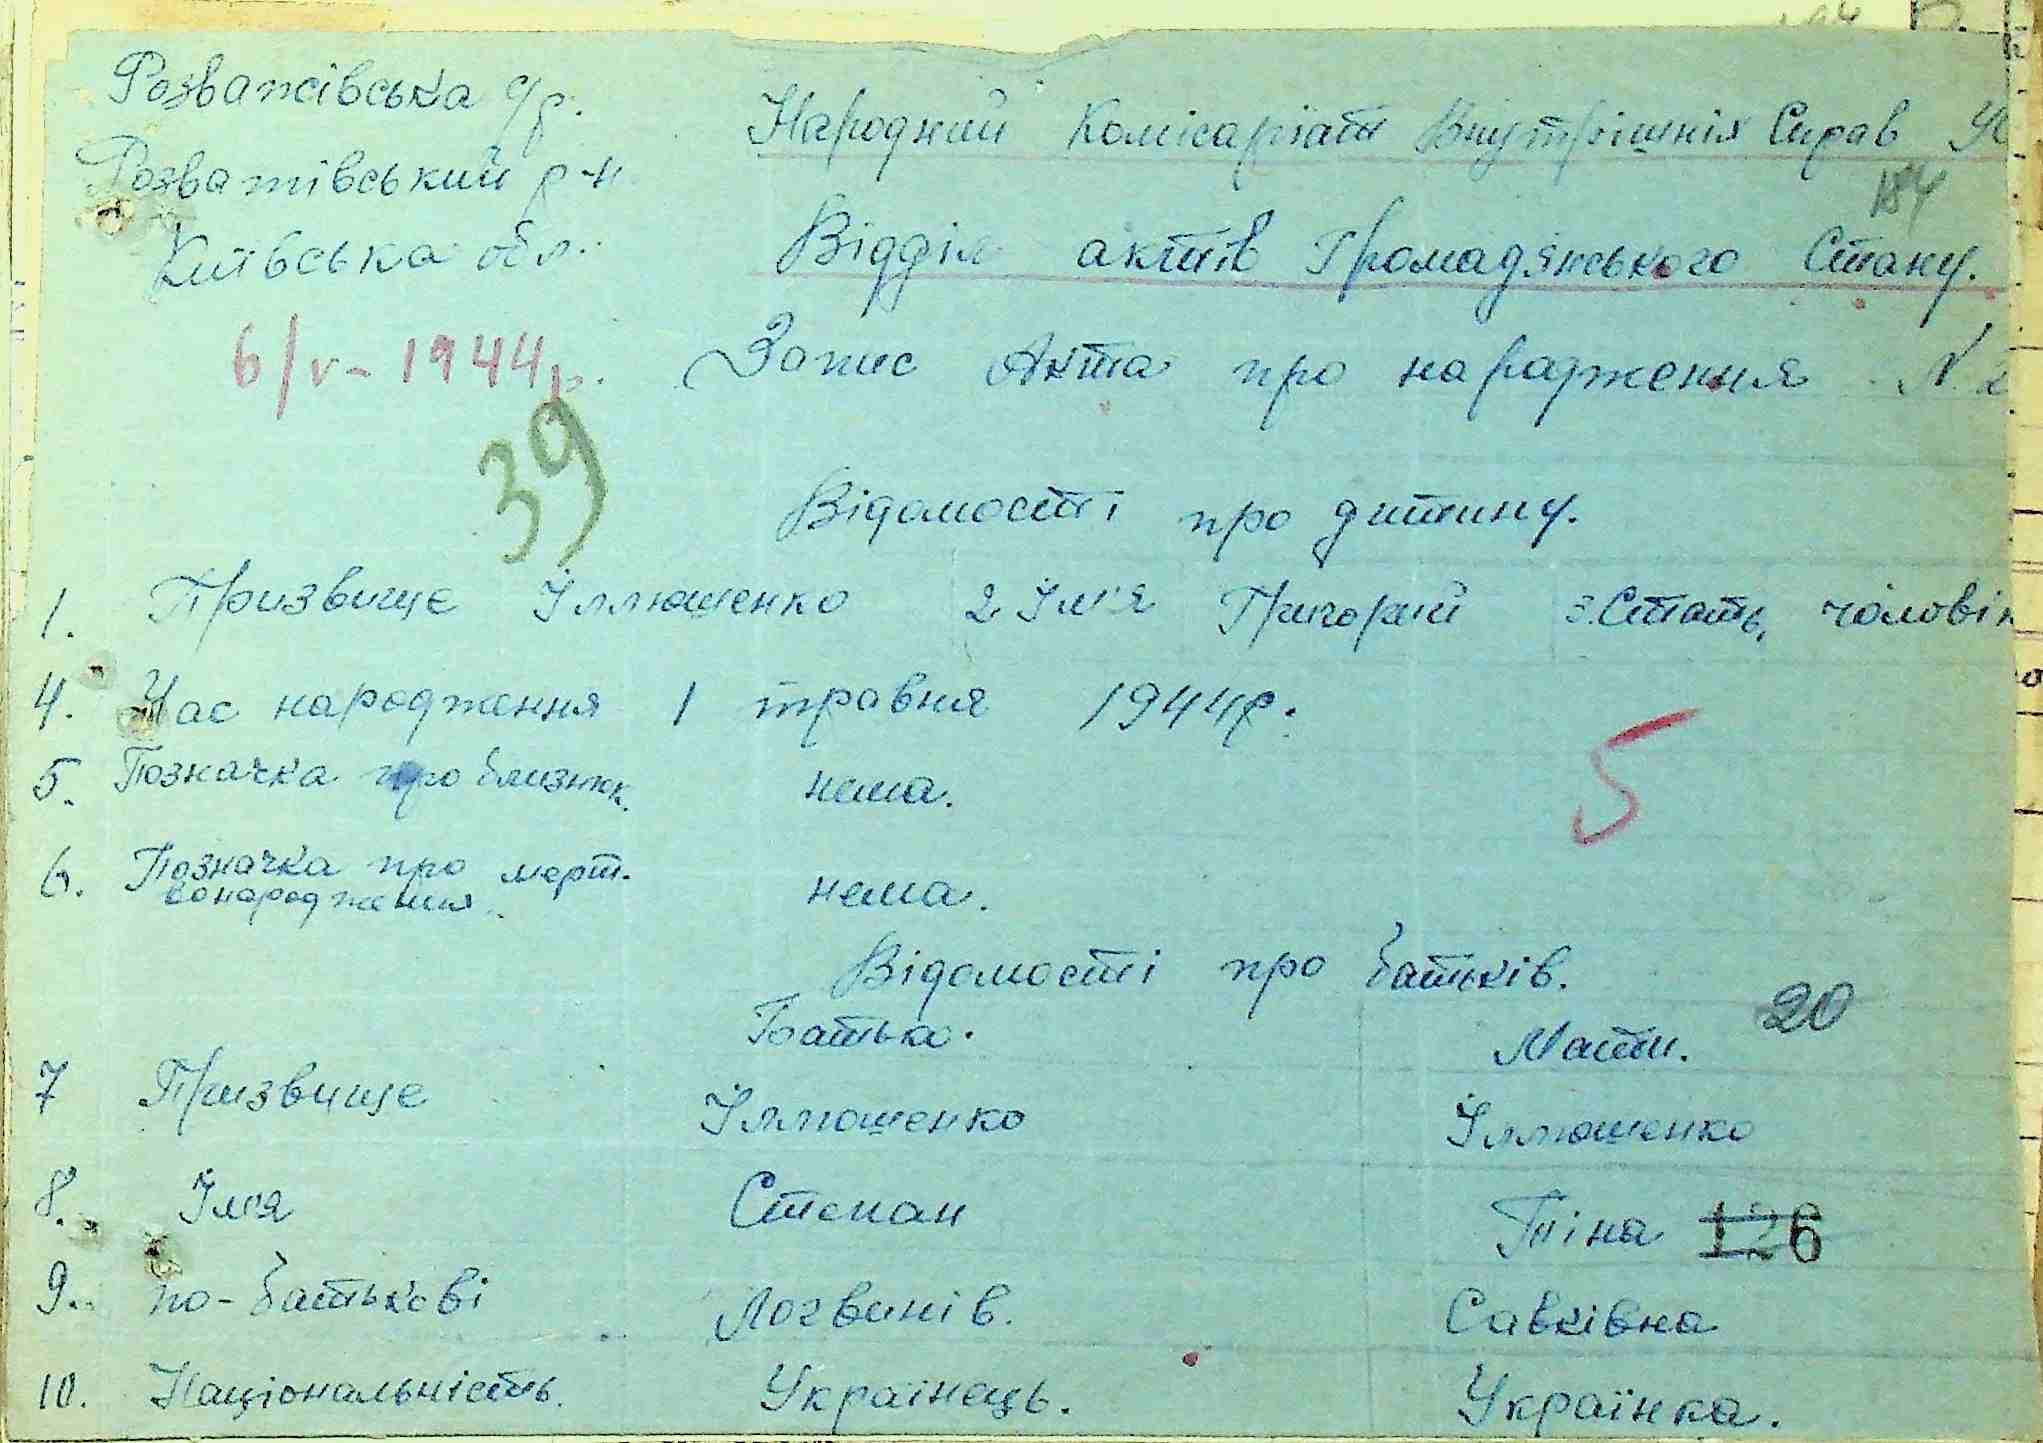 Розважівська с/р.
Розважівський р-н.
Київська обл.
6/V - 1944р.
39
Народний Комісаріат Внутрішніх Справ
184
Відділ актів Громадянського Стану.
Запис Акта про народження N. 2
Відомості про дитину.
1. Призвище Іллюшенко 2. Ім'я Григорий 3. Стать, чоловік
4. Час народження 1 травня 1944р.
5
5. Позначка про близнюк. нема.
6. Позначка про мерт-
вонародження. нема.
Відомості про батьків.
Батько. Мати. 20
7 Призвище Іллюшенко Іллюшенко
8. Ім'я Степан 126
9. по-батькові Логвинів. Савківна
10. Національність. Українець. Українка.